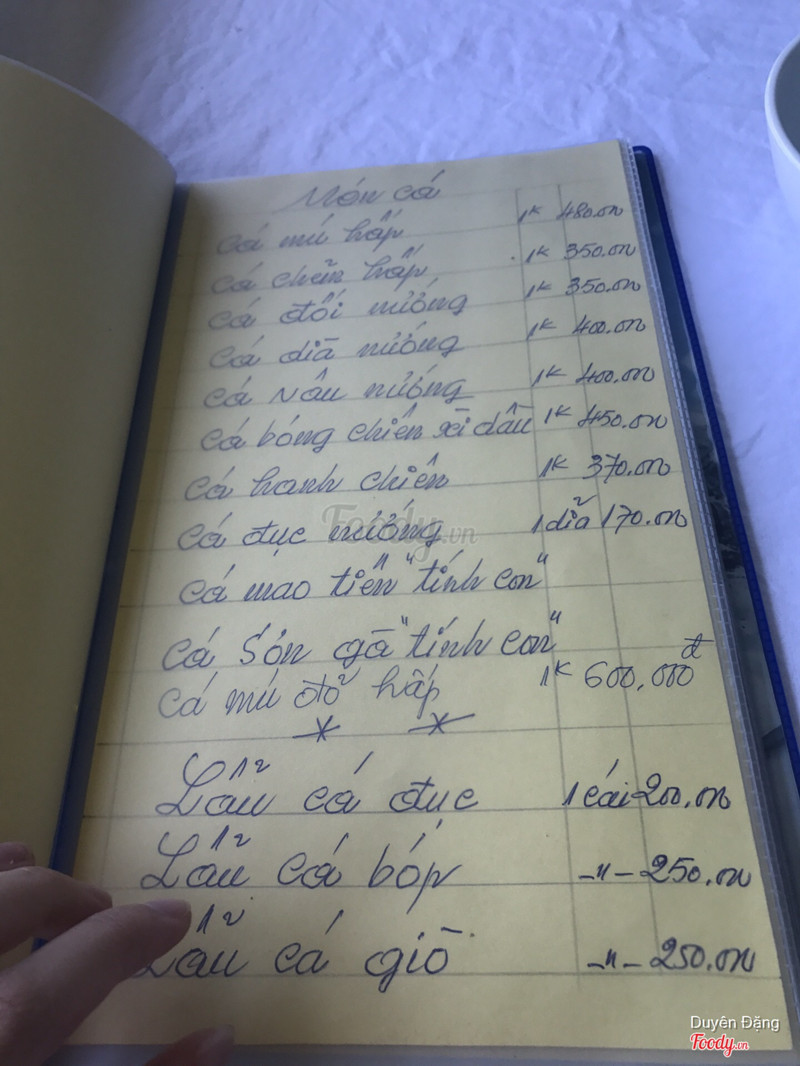 Món cá
Cá mú hấp 1K 480.000
Cá chẽm hấp 1K 350.000
Cá đối nướng 1K 350.000
Cá dìa nướng 1K 400.000
Cá nâu nướng 1K 400.000
Cá bóng chiên xì dầu 1K 450.000
Cá hanh chiên 1K 370.000
Cá đục nướng 1 dĩa 170.000
Cá mao tiên "tính con"
Cá Sơn gà "tính con"
Cá mú đỏ hấp 1K 600,000đ
Lẩu cá đục 1 cái 200.000
Lẩu cá bóp -"- 250.000
Lẩu cá giò -"- 250.000
Foody.vn
Duyên Đặng
Foody.vn